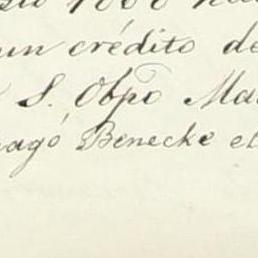 1000
un crédito de
S. Obpo Ma
agó Benecke el